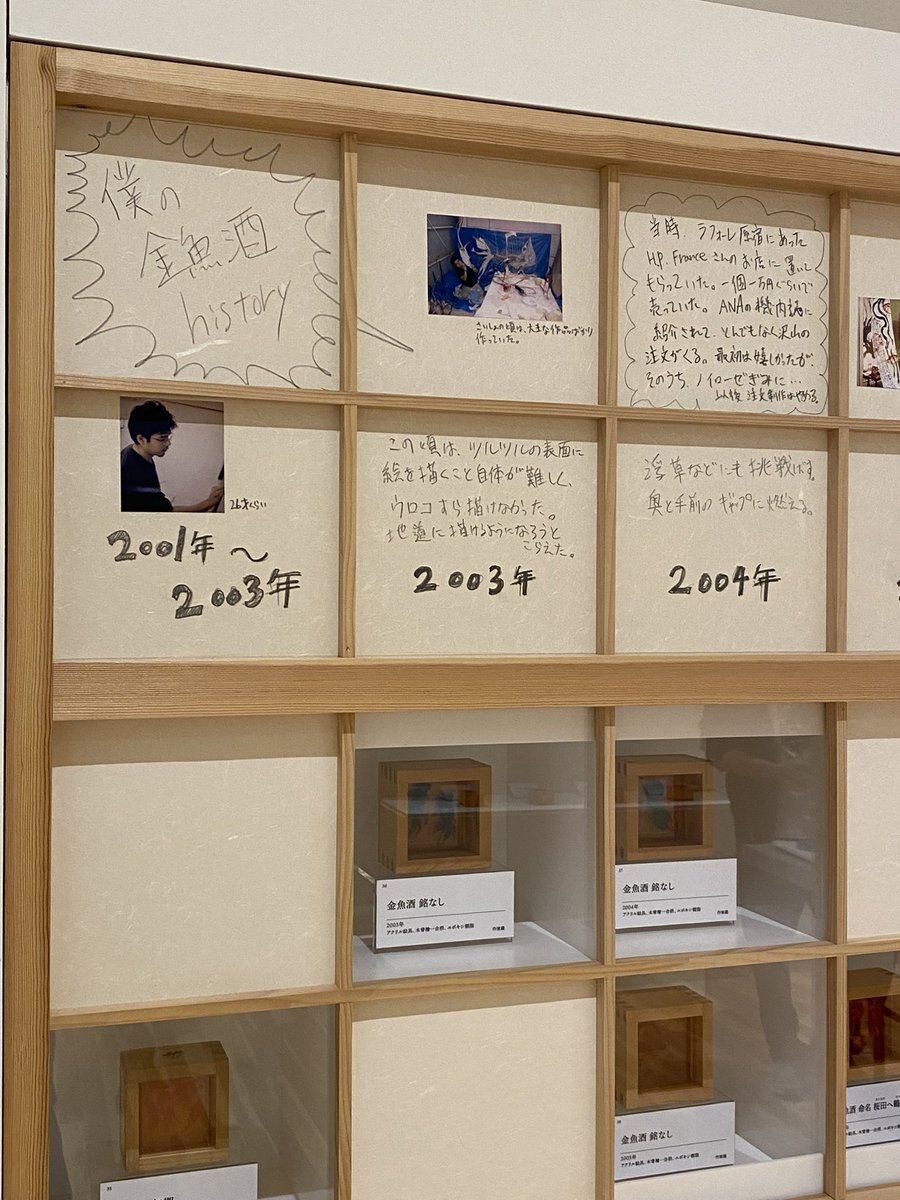 僕の
金魚酒
history
さいしょの頃は、大きな作品ばかり
作っていた。
当時、ラフォーレ原宿にあった
HP. France さんのお店に置いて
もらっていた。一個一万円ぐらいで
売っていた。ANAの機内誌に
紹介されて、とんでもなく沢山の
注文がくる。最初は嬉しかったが、
そのうち、ノイローゼぎみに…
以後、注文制作はやめる。
26才くらい
2001年〜
2003年
この頃は、ツルツルの表面に
絵を描くこと自体が難しく、
ウロコすら描けなかった。
地道に描けるようになろうと
こらえた。
2003年
浮草などにも挑戦しだす。
奥と手前のギャップに燃える。
2004年
36
金魚酒 銘なし
2003年
アクリル絵具、木曽檜一合枡、エポキシ樹脂
作家蔵
37
金魚酒 銘なし
2004年
アクリル絵具、木曽檜一合枡、エポキシ樹脂
作家蔵
38
金魚酒 銘なし
2005年
アクリル絵具、木曽檜一合枡、エポキシ樹脂
作家蔵
金魚酒 命名 桜田へ鶴
アクリル絵具、木曽檜一合枡、エポキシ樹脂
35